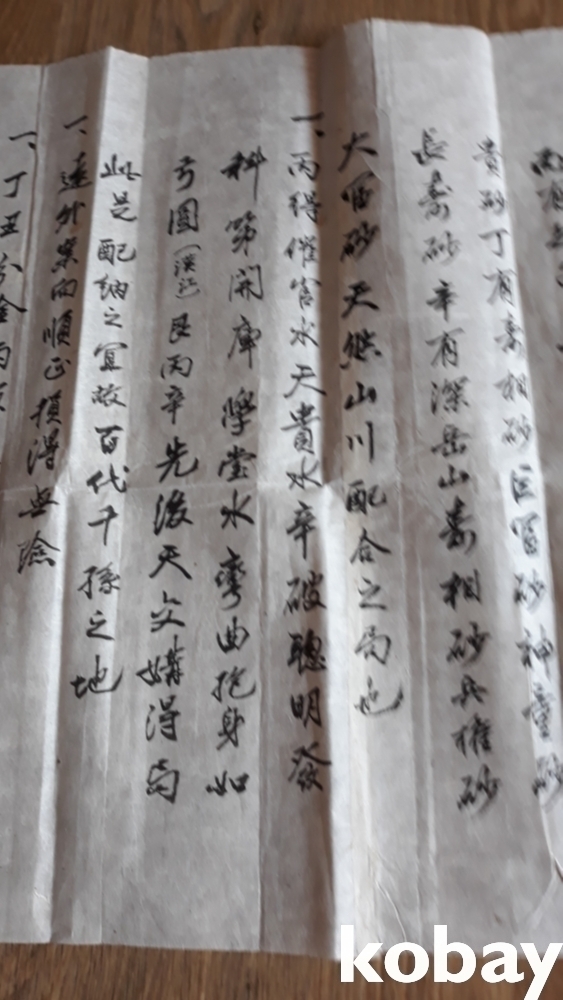 貴砂丁有壽相砂巨富砂神童砂
長壽砂辛有深岳山壽相砂兵權砂
大富砂天然山川配合之局也
一、丙得催官水天貴水辛破聰明發
科第開庫學堂水彎曲抱身如
弓圓(漢江)艮丙辛先後天交媾得局
此是配納之宜故百代千孫之地
一、遠外案向順正損得無險
一、丁丑分金
kobay